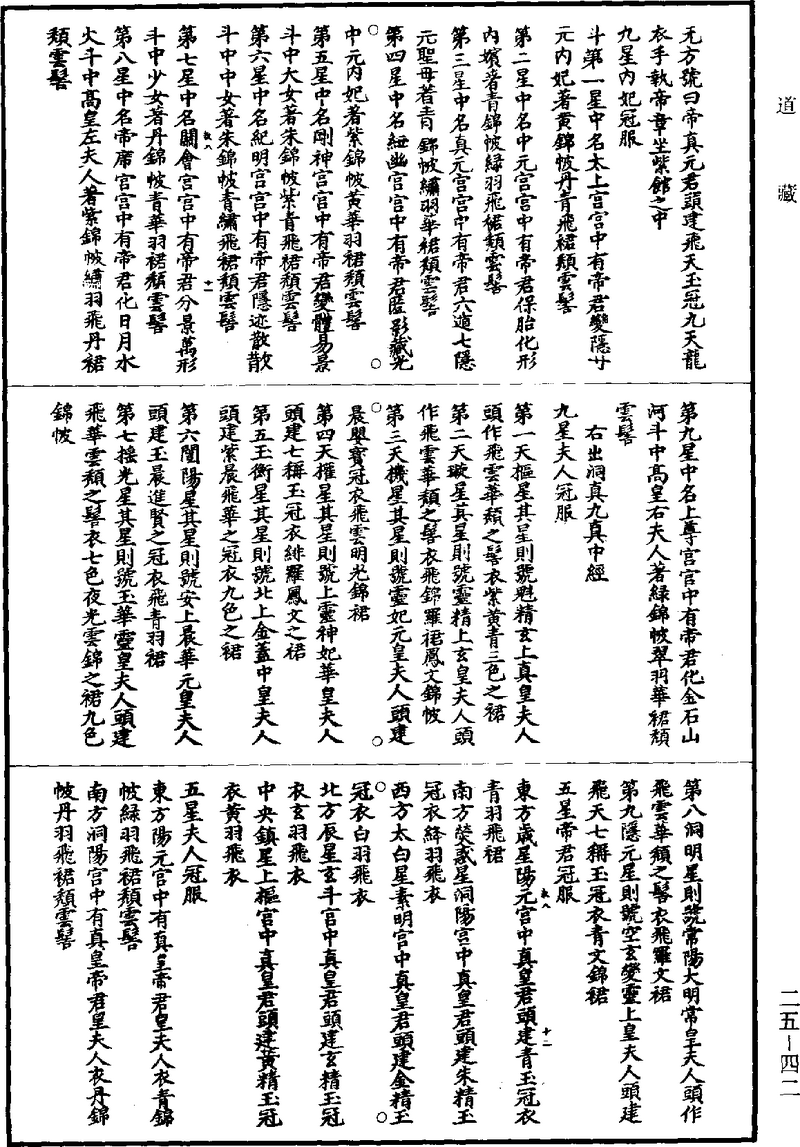 道藏
无方號曰帝真元君頭建飛天玉冠九天龍
衣手執帝章坐紫館之中
九星內妃冠服
斗第一星中名太上宮宮中有帝君變隱中
元內妃著黃錦帔丹青飛裙頹雲髻
第二星中名中元宮宮中有帝君保胎化形
內嬪著青錦帔綠羽飛裙頹雲髻
第三星中名真元宮宮中有帝君六遁七隱
元聖母著青錦帔繡羽華裙頹雲髻
第四星中名紐幽宮宮中有帝君匿影藏光
中元內妃著紫錦帔黃華羽裙頹雲髻
第五星中名剛神宮宮中有帝君變體易景
斗中大女著朱錦帔紫青飛裙頹雲髻
第六星中名紀明宮宮中有帝君隱迹散散
斗中中女著朱錦帔青繡飛裙頹雲髻
第七星中名關會宮宮中有帝君分景萬形
斗中少女著丹錦帔青華羽裙頹雲髻
第八星中名帝席宮宮中有帝君化日月水
火斗中高皇左夫人著紫錦帔繡羽飛丹裙
頹雲髻
第九星中名上尊宮宮中有帝君化金石山
河斗中高皇右夫人著綠錦帔翠羽華裙頹
雲髻
右出洞真九真中經
九星夫人冠服
第一天樞星其星則號魁精玄上真皇夫人
頭作飛雲華頹之髻衣紫黃青三色之裙
第二天璇星其星則號靈精上玄皇夫人頭
作飛雲華頹之髻衣飛錦羅裙鳳文錦帔
第三天機星其星則號靈妃元皇夫人頭建
晨嬰寶冠衣飛雲明光錦裙
第四天權星其星則號上靈神妃華皇夫人
頭建七稱玉冠衣緋羅鳳文之裙
第五玉衡星其星則號北上金蓋中皇夫人
頭建紫晨飛華之冠衣九色之裙
第六闓陽星其星則號安上晨華元皇夫人
頭建玉晨進賢之冠衣飛青羽裙
第七搖光星其星則號玉華靈皇夫人頭建
飛華雲頹之髻衣七色夜光雲錦之裙九色
錦帔
第八洞明星則號常陽大明常皇夫人頭作
飛雲華頹之髻衣飛羅文裙
第九隱元星則號空玄變靈上皇夫人頭建
飛天七稱玉冠衣青文錦裙
五星帝君冠服
東方歲星陽元宮中真皇君頭建青玉冠衣
青羽飛裙
南方熒惑星洞陽宮中真皇君頭建朱精玉
冠衣絳羽飛衣
西方太白星素明宮中真皇君頭建金精玉
冠衣白羽飛衣
北方辰星玄斗宮中真皇君頭建玄精玉冠
衣玄羽飛衣
中央鎮星上樞宮中真皇君頭建黃精玉冠
衣黃羽飛衣
五星夫人冠服
東方陽元宮中有真皇帝君皇夫人衣青錦
帔綠羽飛裙頹雲髻
南方洞陽宮中有真皇帝君皇夫人衣丹錦
帔丹羽飛裙頹雲髻
二五－四二